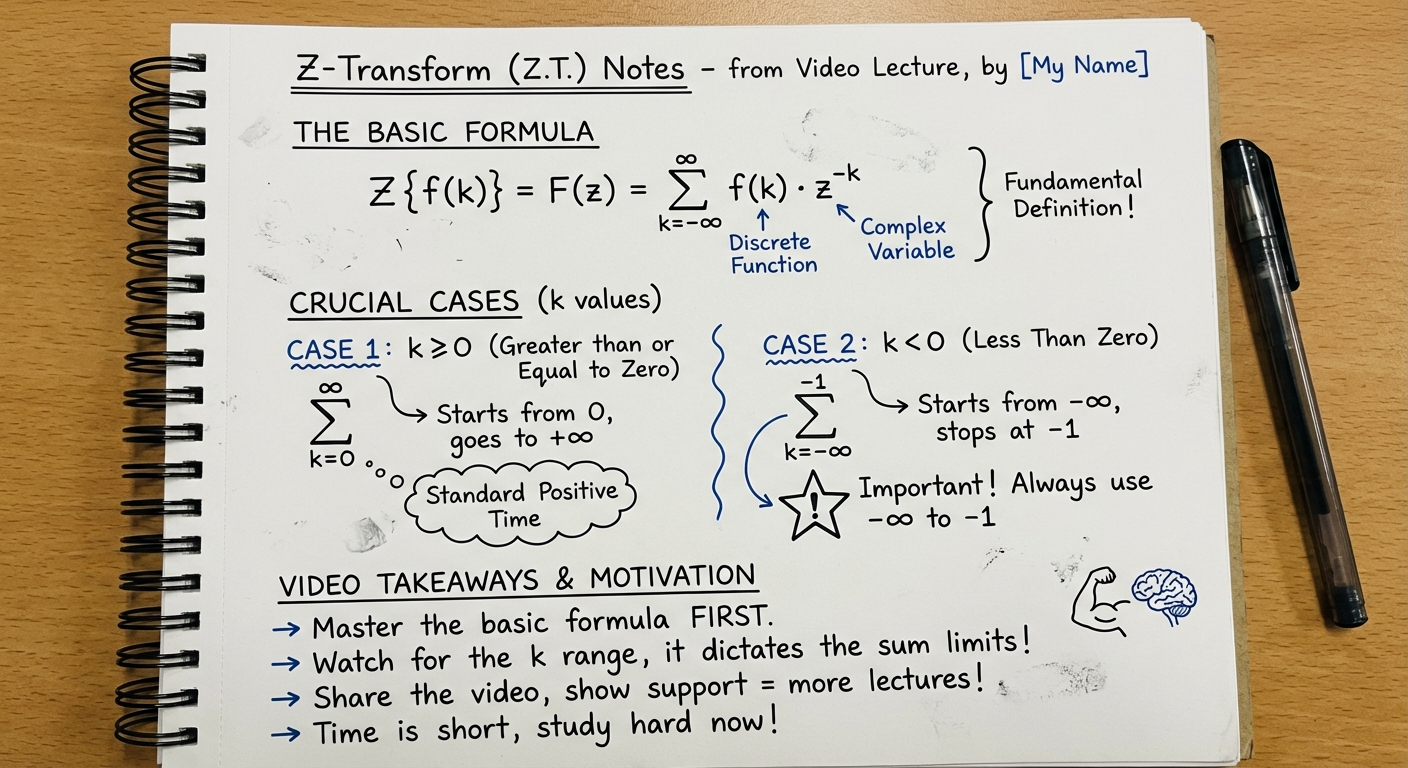 Z-Transform (Z.T.) Notes - from Video Lecture, by [My Name]
THE BASIC FORMULA
Z{f(k)} = F(z) = ∞∑k=-∞ f(k) · z^-k
Discrete
Function
Complex
Variable
Fundamental
Definition!
CRUCIAL CASES (k values)
CASE 1: k ≥ 0 (Greater than or
Equal to Zero)
∞
∑
k=0
Starts from 0,
goes to +∞
Standard Positive
Time
CASE 2: k < 0 (Less Than Zero)
-1
∑
k=-∞
Starts from -∞,
stops at -1
! Important! Always use
-∞ to -1
VIDEO TAKEAWAYS & MOTIVATION
→ Master the basic formula FIRST.
→ Watch for the k range, it dictates the sum limits!
→ Share the video, show support = more lectures!
→ Time is short, study hard now!